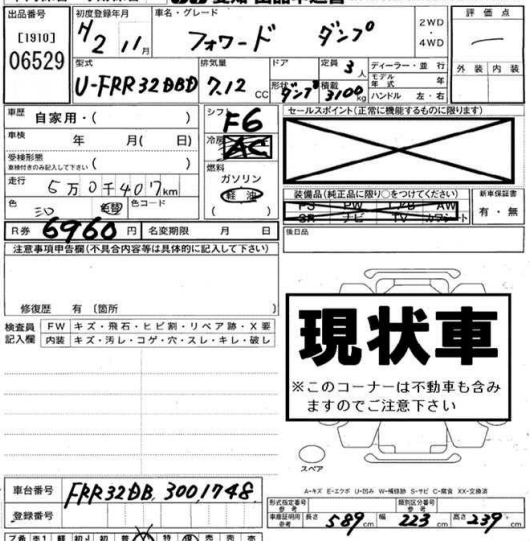 出品番号
[1910]
06529
初度登録年月
H2 11月
車名・グレード
フォワード ダンプ
2WD
・
4WD
評価点
外装 内装
型式
U-FRR32DBD
排気量
7.12 CC
ドア
形状 ダンプ
定員 3人
積載 3100kg
ディーラー・並行
モデル
年式 年
ハンドル 左・右
車歴
自家用・( )
車検 年 月( 日)
受検形態
車検付きのみ記入して下さい ( )
走行
km
色
色コード
シフト
F6
冷房
AC
燃料
ガソリン
軽油
セールスポイント(正常に機能するものに限ります)
装備品(純正品に限り○をつけてください)
PS PW エアB AW
SR ナビ TV カワシート
新車保証書
有・無
後日品
R券 6960 名変期限 月 日
注意事項申告欄(不具合内容等は具体的に記入して下さい)
修復歴 有 〔箇所
検査員
記入欄
FW キズ・飛石・ヒビ割・リペア跡・X要
内装 キズ・汚レ・コゲ・穴・スレ・キレ・破レ
現状車
※このコーナーは不動車も含み
ますのでご注意下さい
スペア
A-キズ E-エクボ U-凹み W-補修跡 S-サビ C-腐食 XX-交換済
車台番号
FRR32DB 3001748
登録番号
形式指定番号
参考
類別区分番号
参考
車庫証明用
参考
長さ 589cm 幅 223cm 高さ 239cm